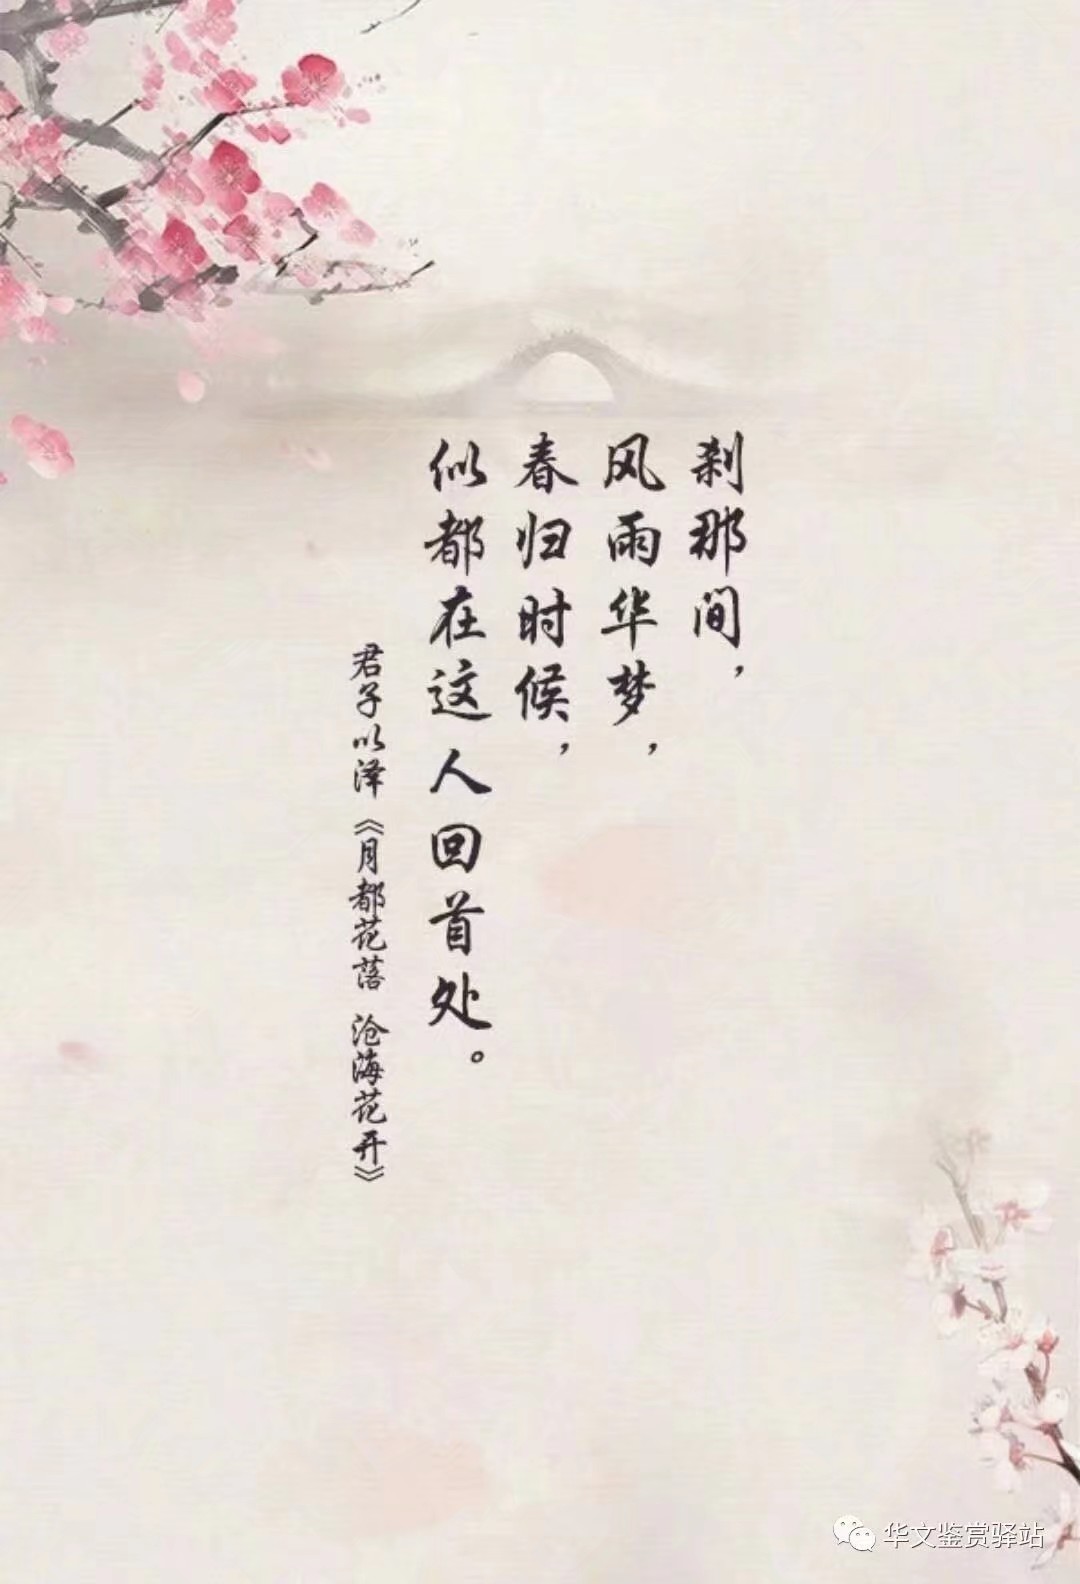 刹那间，
风雨华梦，
春归时候，
似都在这人回首处。
君子以泽《月都花落 沧海花开》
华文鉴赏驿站